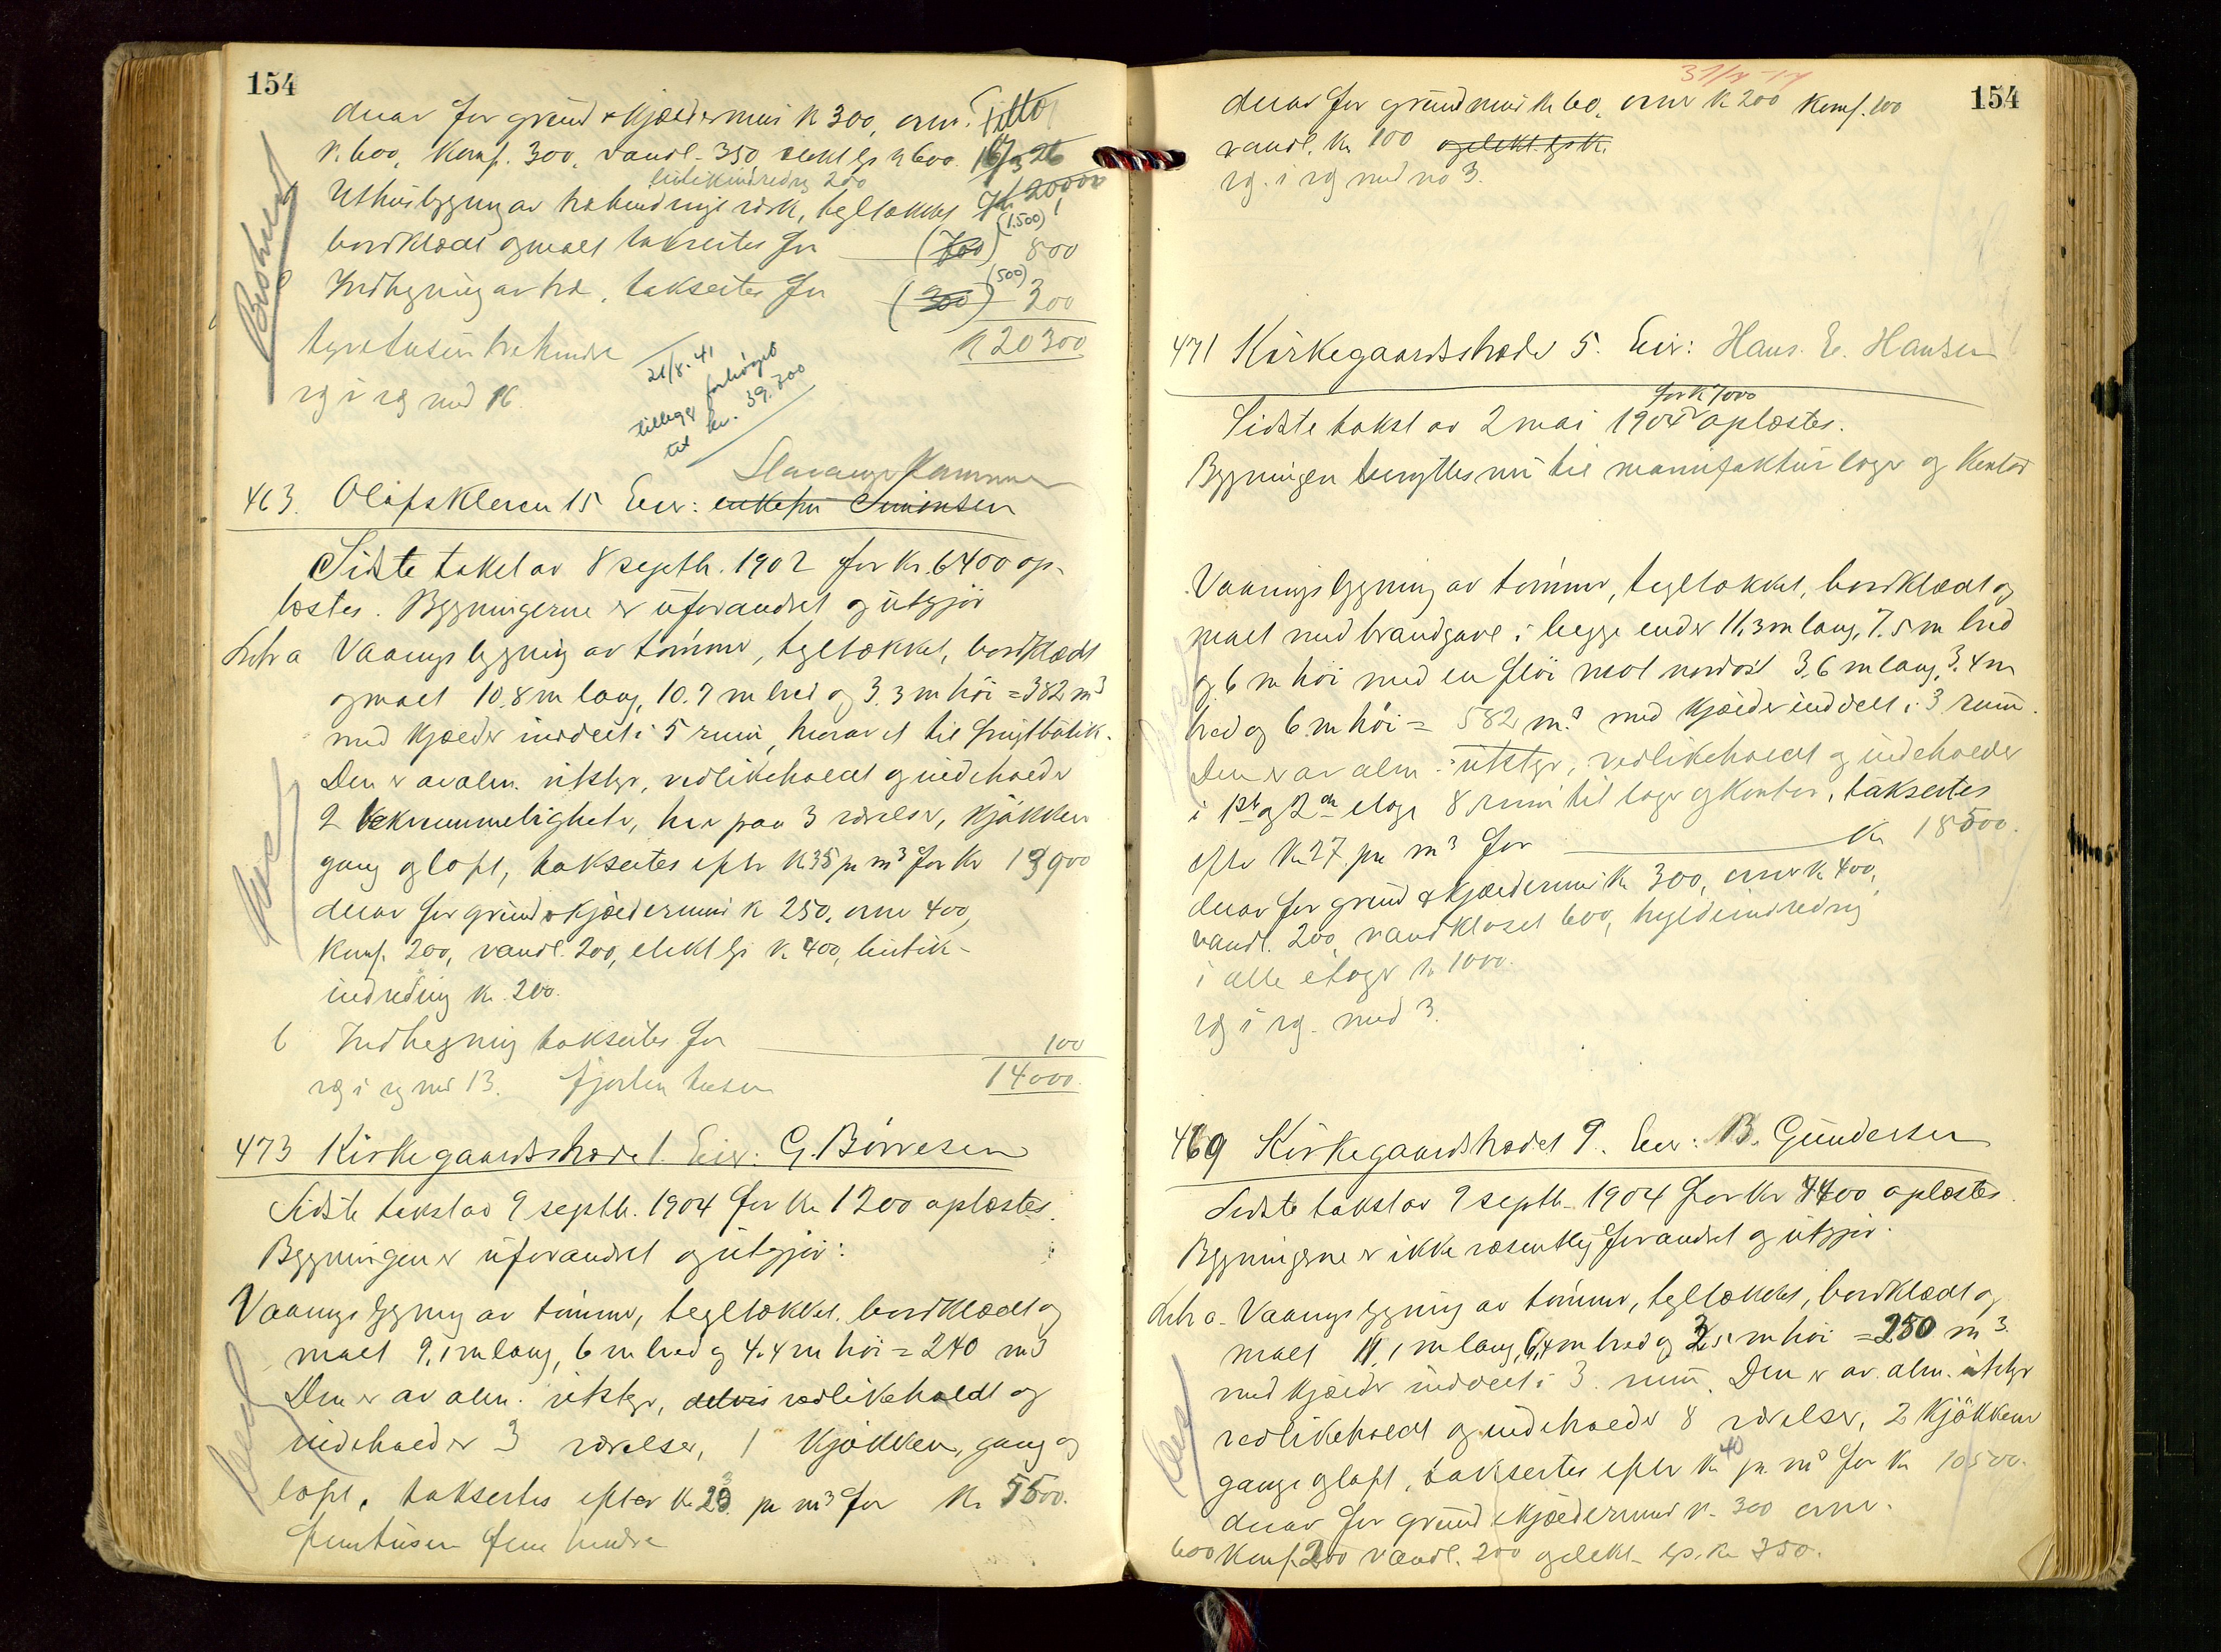 154
derav for grund & kjældermur k 300, ovne
k. 600, komf. 300, vandl. 350, elekt lys k 600. 16/3 26
butikindredn 200
Uthusbygning av træbindingsverk, tegltækket 20000
bordklædt og malt takseres for (700) (1.500) 800
Indhegning av træ, takseres for (200) (500) 300
k 20300
tyvetusen trehundre
rg i rg med 16.
21/8. 41
tillegg forhøyet
til kr. 39.300
Stavanger Kammer
463. Olafskleven 15 Eier: enkefru Simonsen
Sidste takst av 8 septbr. 1902 for kr. 6400 op-
læstes. Bygningerne er uforandret og utgjør
Litr a Vaaningsbygning av tømmer, tegltækket, bordklædt
og malt 10.8 m lang, 10.7 m bred og 3.3 m høi = 382 m3
med kjælder inddelt i 5 rum, herav et til frugtbutik.
Den er av alm. utstyr, vedlikeholdt og indeholder
2 bekvemmeligheter, hver paa 3 værelser, kjøkken
gang og loft, takseres efter k 35 pr m3 for kr 13900
derav for grund & kjældermur k 250, ovne 400,
komf. 200, vandl. 200, elekt lys k 400, butik-
indredning kr. 200.
b Indhegning takseres for 100
rg i rg med 13. fjorten tusen 14000.
473 Kirkegaardsstrædet 1. Eier: G. Børresen
Sidste takst av 9 septbr. 1904 for kr 1200 oplæstes.
Bygningen er uforandret og utgjør:
Vaaningsbygning av tømmer, tegltækket, bordklædt og
malt 9.1 m lang, 6 m bred og 4.4 m høi = 240 m3
Den er av alm. utstyr, delvis vedlikeholdt og
indeholder 3 værelser, 1 kjøkken, gang og
loft, takseres efter kr 23 pr m3 for kr 5500.
femtusen fem hundre
31/8 17
154
derav for grundmur kr 60, ovner k 200 komf. 100
vandl. kr 100 og elekt. lys k.
rg. i rg med no 3.
471 Kirkegaardsstrædet 5. Eier: Hans. E. Hansen
for k 7000
Sidste takst av 2 mai 1904 oplæstes.
Bygningen benyttes nu til manufakturlager og kontor
Vaaningsbygning av tømmer, tegltækket, bordklædt og
malt med brandgavl i begge ender 11,3 m lang, 7.5 m bred
og 6 m høi med en fløi mot nordøst 3,6 m lang, 3.4 m
bred og 6 m høi = 582 m3 med kjælder inddelt i 3 rum.
Den er av alm. utstyr, vedlikeholdt og indeholder
i 1ste og 2den etage 8 rum til lager og kontor, takseres
efter kr 27 pr m3 for kr 15500.
derav for grund & kjældermur kr 300, ovner k 400,
vandl. 200, vandkloset 600, hyldeindredning
i alle etager k 1000.
rg i rg. med 3.
469 Kirkegaardsstrædet 9. Eier: B. Gundersen
Sidste takst av 9 septbr. 1904 for kr 4400 oplæstes.
Bygningerne er ikke væsentlig forandret og utgjør.
Litr a. Vaaningsbygning av tømmer, tegltækket, bordklædt og
malt 11,1 m lang, 6,4 m bred og 3,5 m høi = 250 m3.
med kjælder inddelt i 3 rum. Den er av alm. utstyr
vedlikeholdt og indeholder 8 værelser, 2 kjøkkener
gange og loft, takseres efter kr 40 pr. m3 for kr 10500.
derav for grund & kjældermur k. 300 ovne.
600 komf. 200 vandl. 200 og elekt. lys. kr 350.